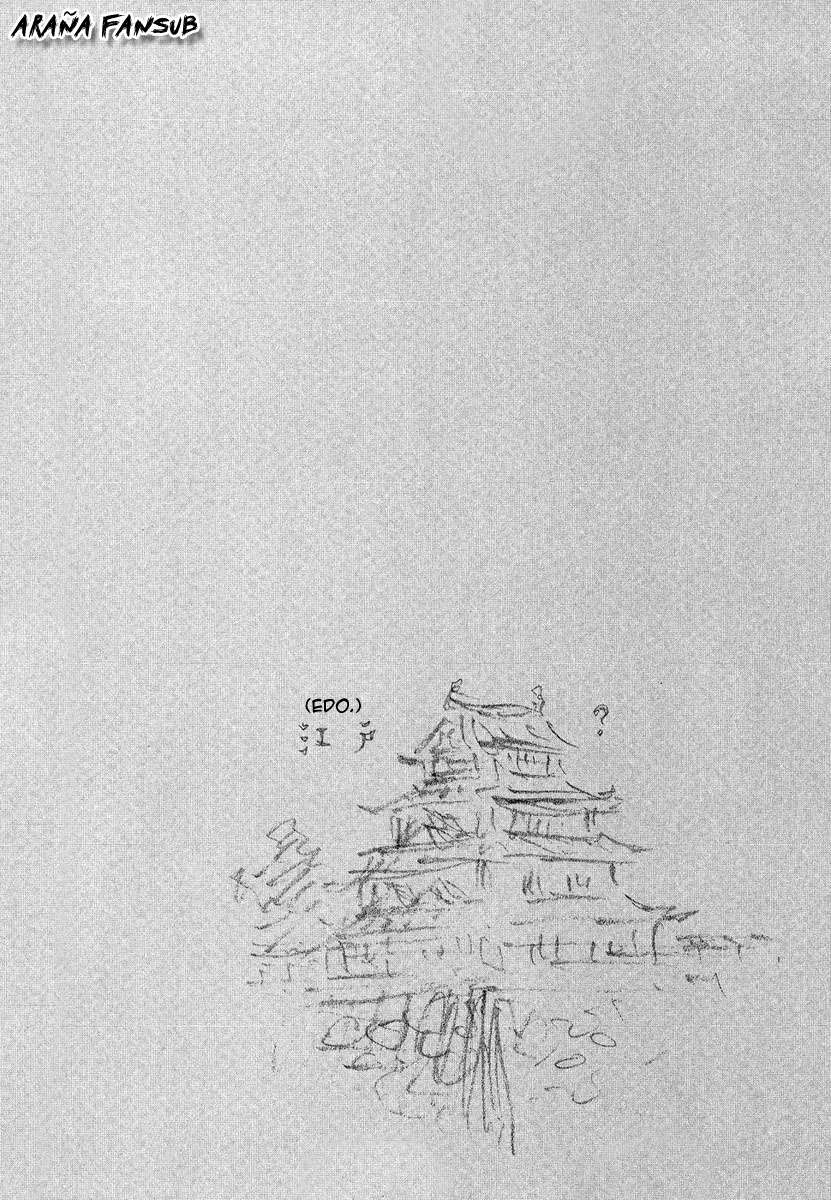 ARAÑA FANSUB
(EDO.)
江戸
?